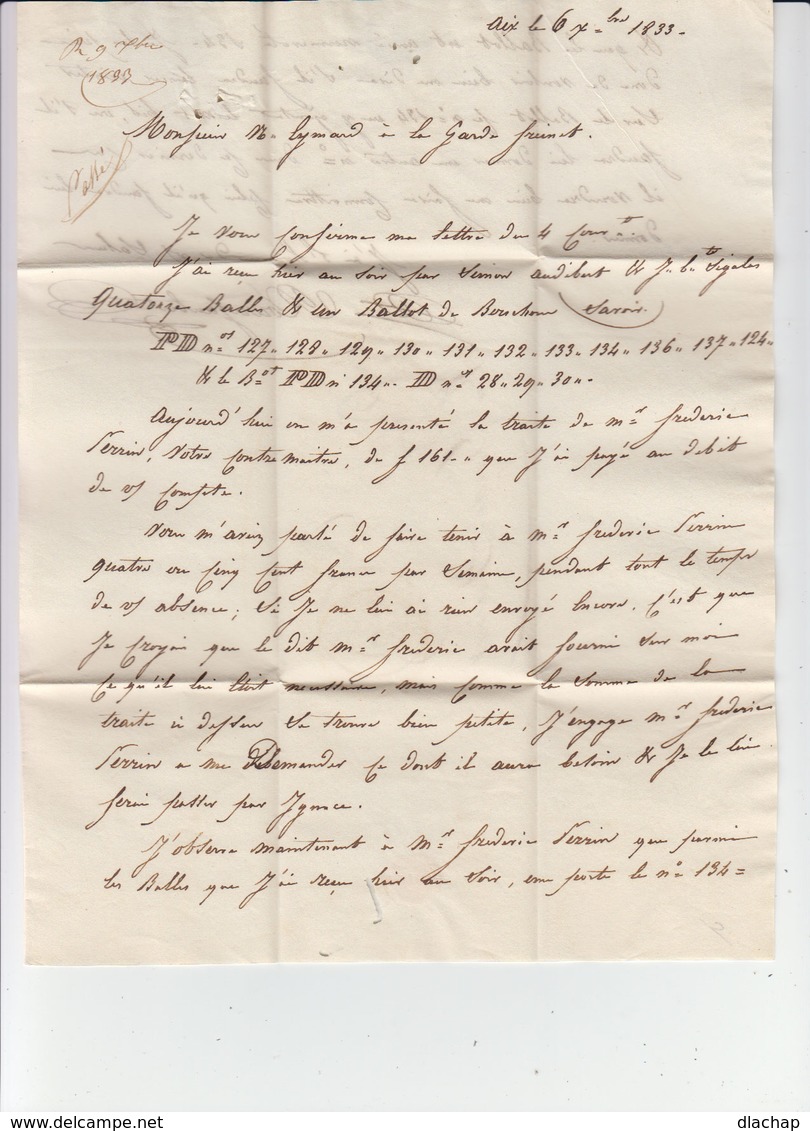 Aix le 6 x=bre 1833.
R 9 xbre
1833
Monsieur N. Eymard à la Garde freinet.
Passé
Je vous confirme ma lettre du 4 Cour.t
J'ai reçu hier au soir par Simon audibert & J. b.te Sigalas
Quatorze Balles & un Ballot de Bouchons Savoir.
PD n.os 127,, 128,, 129,, 130,, 131,, 132,, 133,, 134,, 136,, 137,, 124,,
& le B=ot PD n° 134,,. D n=os 28,, 29,, 30,,.
Aujourd'hui on m'a presenté la traite de m=r frederic
Perrin, Votre contremaitre, de f 161-,, que J'ai payé au debit
de v/ Compte.
Vous m'aviez parlé de faire tenir à m=r frederic Perrin
quatre ou Cinq Cent francs par Semaine, pendant tout le temps
de v/ absence; Si Je ne lui ai rien envoyé Encore, C'est que
Je Croyais que le dit m=r frederic avait fourni Sur moi
Ce qu'il lui Etoit necessaire, mais Comme la Somme de la
traite ci dessus Se trouve bien petite, J'engage m=r frederic
Perrin a me Demander Ce dont il aura besoin & Je le lui
ferai passer par Ignace.
J'observe maintenant à M=r frederic Perrin que parmi
les Balles que J'ai reçu hier au Soir, une porte le n.° 134=
delcampe.net
dlachap